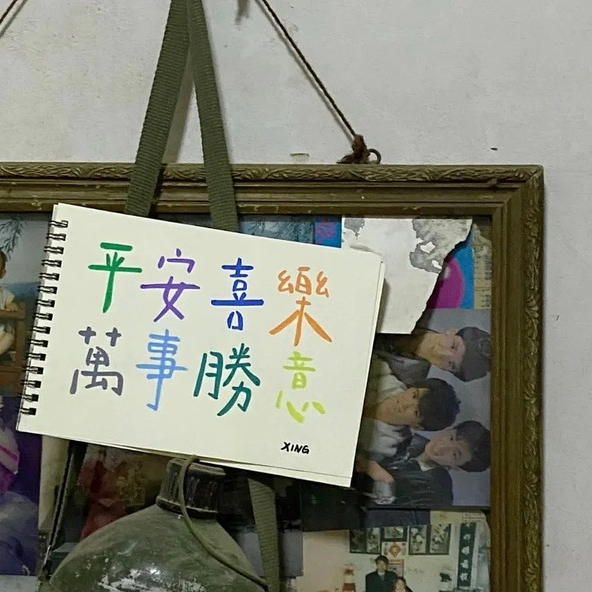 平安喜樂
萬事勝意
XING